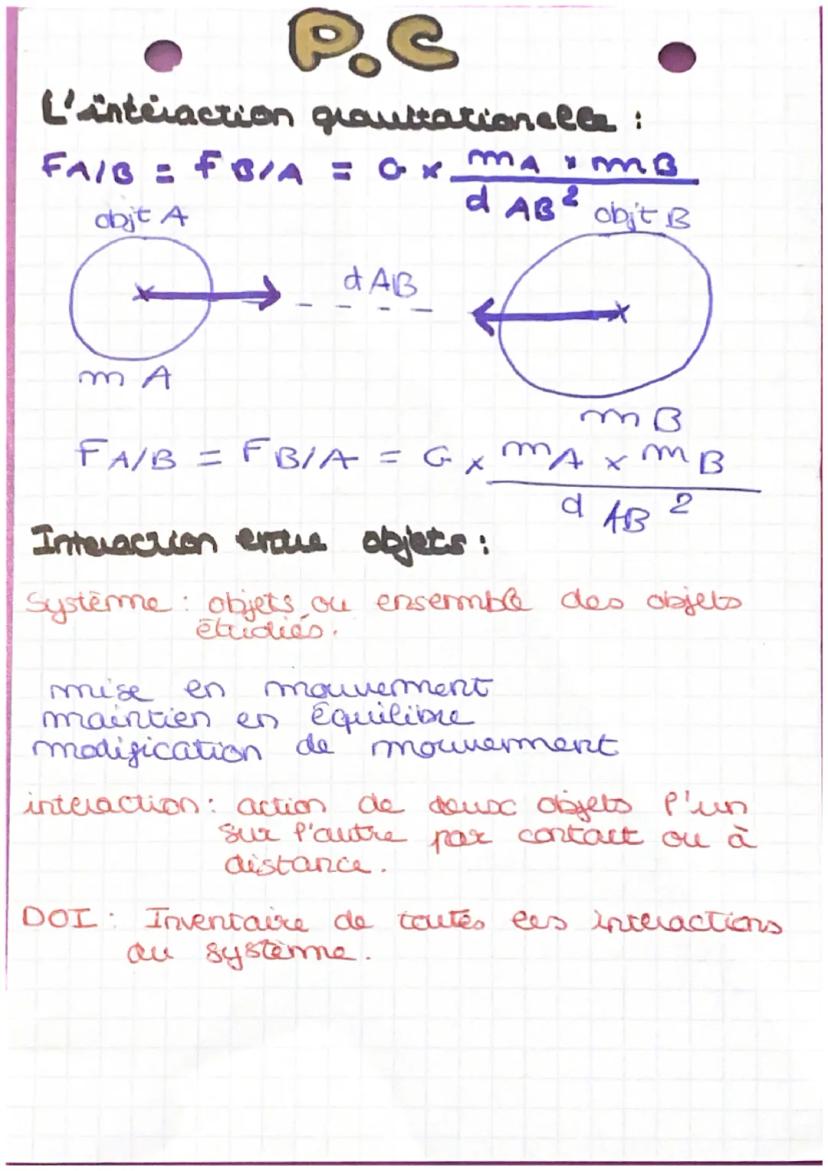 P.C
L'intéraction gravitationelle :
FA/B = FB/A = G x mA x mB
d AB²
objt A
objt B
d AB
m A
m B
FA/B = FB/A = G x mA x mB
d AB 2
Interaction entre objets :
Système : objets ou ensemble des objets
étudiés.
mise en mouvement
maintien en équilibre
modification de mouvement
interaction : action de deux objets l'un
sur l'autre par contact ou à
distance.
DOI : Inventaire de toutes les interactions
du système.